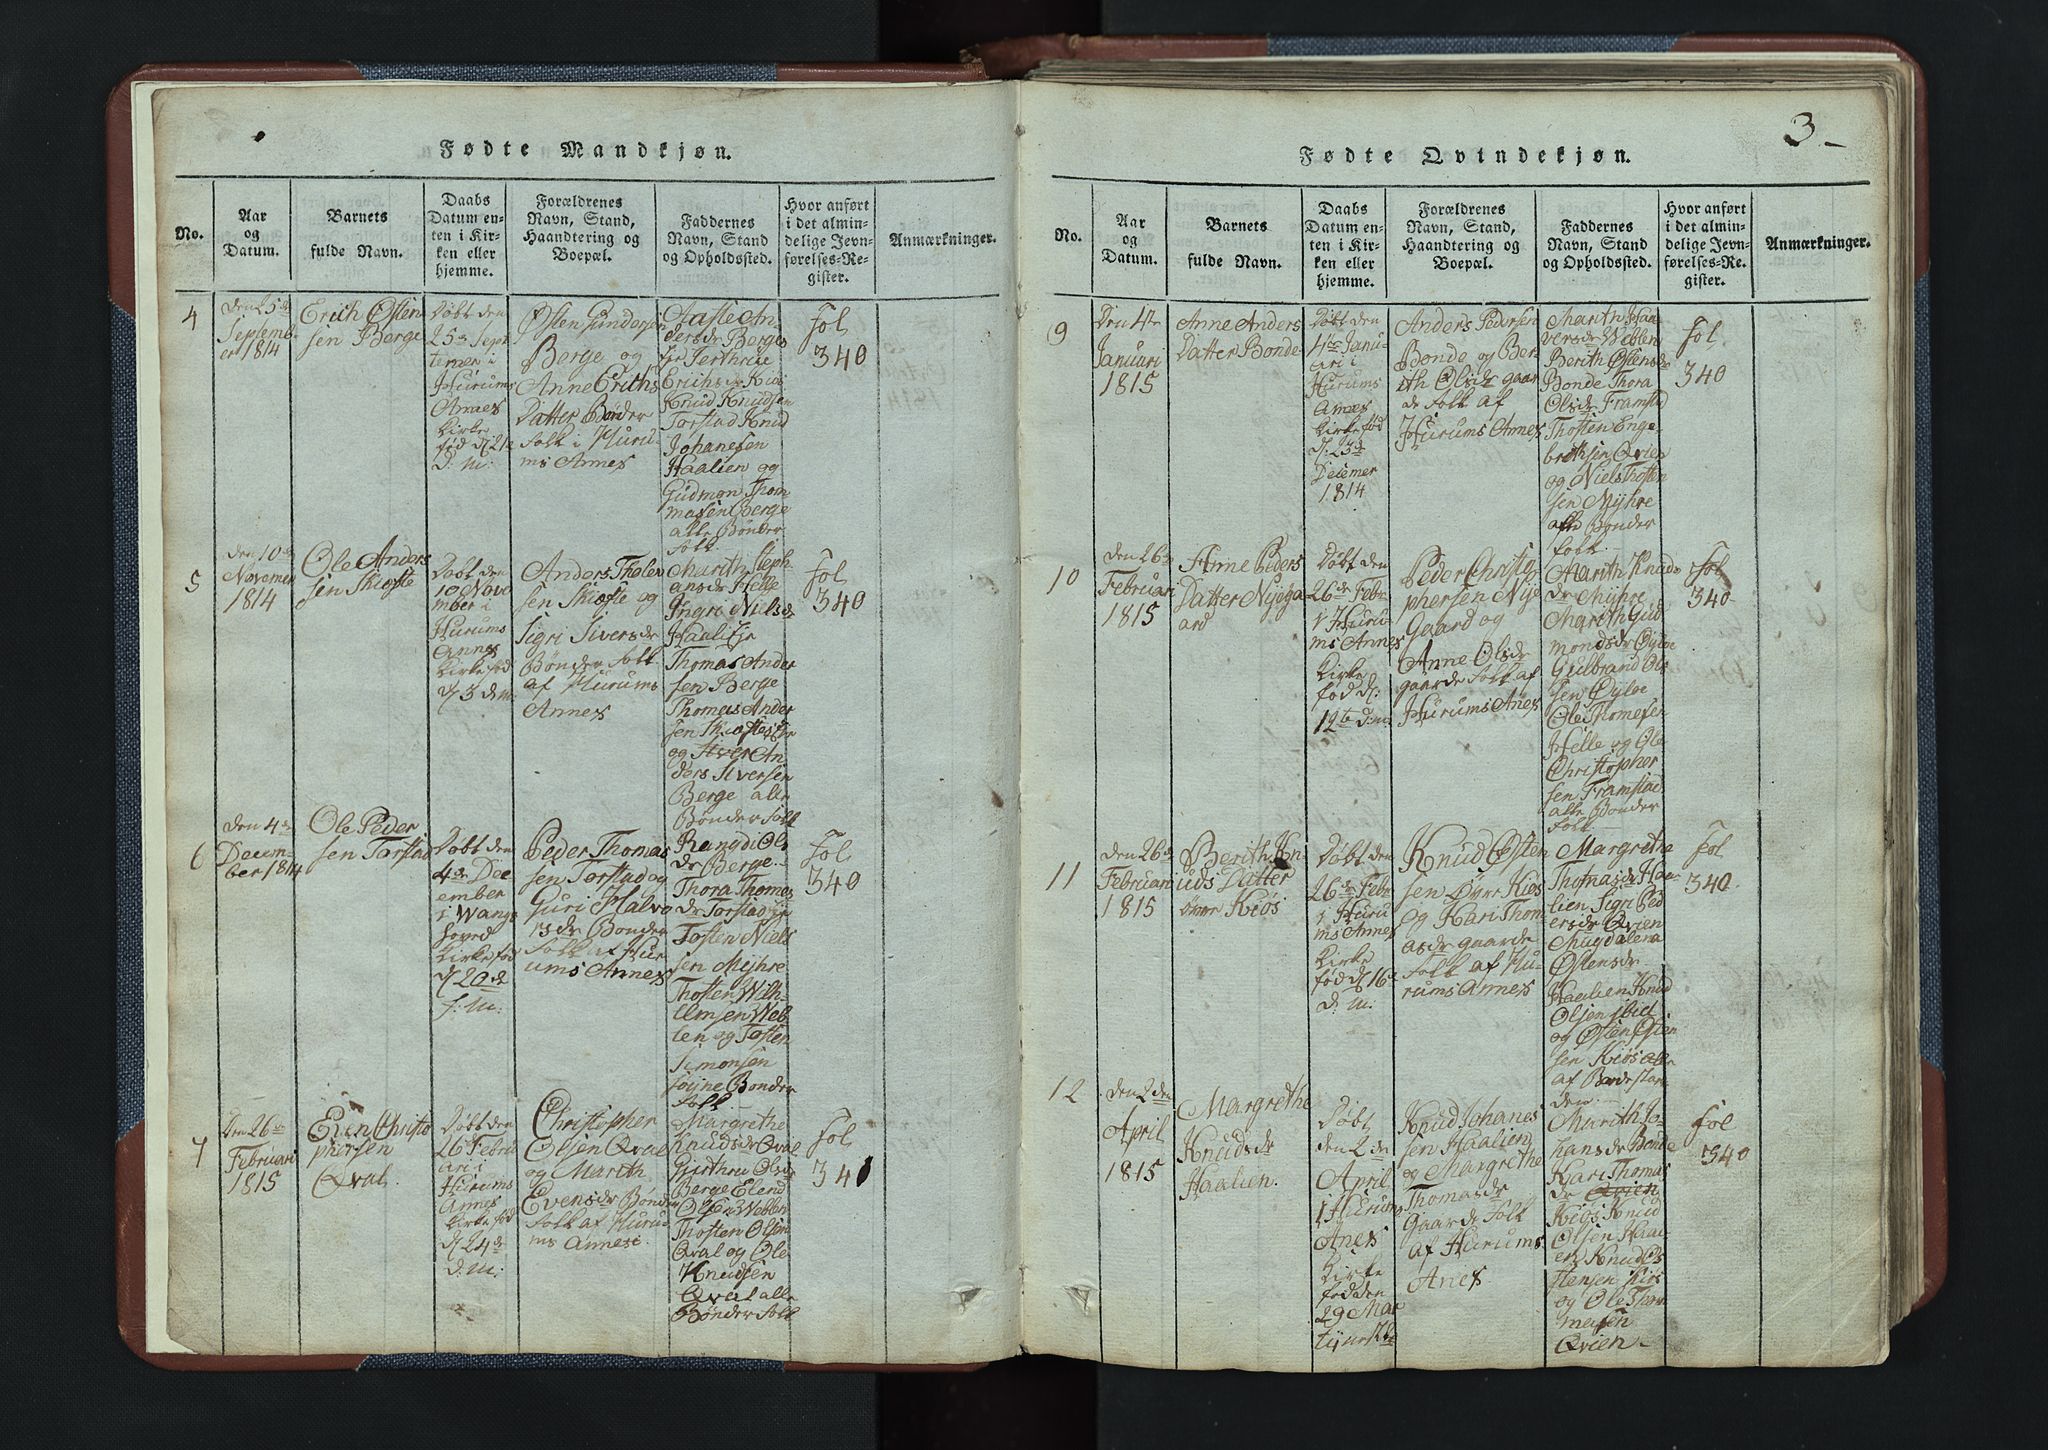 Fødte Mandkjøn.
No.
Aar
og
Datum.
Barnets
fulde Navn.
Daabs
Datum en-
ten i Kir-
ken eller
hjemme.
Forældrenes
Navn, Stand,
Haandtering og
Boepæl.
Faddernes
Navn, Stand
og Opholdssted.
Hvor anført
i det almin-
delige Jevn-
førelses-Re-
gister.
Anmærkninger.
4
den 25de
Septemb-
er 1814
Erich Østen
sen Berge
Døbt den
25de Sept
temer i
Hurums
Annes
kirke
fød d 21e
D: M:
Østen
Berge og
Anne Erichs
Datter Bønder
folk i Huru
ms Annes
Aaste An
dersdr Berge
Erichsdr Kiøs
Knud Knudsen
Torstad Knud
Johanesen
Haalien og
Gudmon Thom
masen Berge
alle Bønder
folk
fol
340
5
den 10de
Novemer
1814
Ole Anders
sen Skiefte
Døbt den
10 Nove
mber i
Hurums
Annes
kirke fød
d 3 d m:
Anders
sen Skiefte og
Sigri Siversdr
Bønder folk
af Hurums
Annes
Marith Steph
ansdr Helle
Ingri Nielsdr
Haalien
Thomas Ander
sen Berge
Thomas Ander
sen
og Iver An
ders Siversen
Berge alle
Bønder folk
fol
340
6
den 4de
Decem-
ber 1814
Ole Peder
sen Torstad
Døbt den
4de Dec
ember
i Wangs
hoved
kirke fød
d 20de
f: M:
Peder Thomas
sen Torstad og
Guri Halvo
rsdr Bønder
folk af Hur
ums Annes
Rangdi Ols
dr Berge
Thora Thomes
dr Torstad
Tosten Niels
sen Mÿhre
Thosten Wilh
elmsen Web
len og Tosten
Simonsen
Føyne Bønder
folk
fol
340
7
Den 26de
Februari
1815
Even Christo
phersen
Qval.
Døbt den
26 Febru
ari i
Hurums
Annes
kirke fød
d 24de
D: M:
Christopher
Olsen Qval
og Marith
Evensdr Bønder
folk af Huru
ms Annes.
Margrethe
Knudsdr Qval
Olsdr
Berge Elend
Olsen Weblen
Thosten Olsen
Qval og Ole
Knudsen
Qval alle
Bønder folk
fol
341
3
Fødte Qvindekjøn.
No.
Aar
og
Datum.
Barnets
fulde Navn.
Daabs
Datum en-
ten i Kir-
ken eller
hjemme.
Forældrenes
Navn, Stand,
Haandtering og
Boepæl.
Faddernes
Navn, Stand
og Opholdssted.
Hvor anført
i det almin-
delige Jevn-
førelses-Re-
gister.
Anmærkninger.
9
Den 4de
Januari
1815
Anne Anders
Datter Bonde
Døbt den
4de Janu
ari i
Hurums
Annes
kirke fød
d: 23de
Decemer
1814
Anders Pedersen
Bonde og Ber
ith Olsdr gaar
de folk af
Hurums Annes
Marith Haa
versdr Weblen
Berith Østensdr
Bonde Thora
Olsdr Framstad
Thosten Enge
brethsen Qvien
og Niels Thosten
sen Mÿhre
alle Bønder
folk.
fol
340
10
den 26de
Februari
1815
Anne Peders
Datter Nÿega
ard
Døbt den
26de Febr
i Huru
ms Annes
kirke
fød d:
12te d: m
Peder Christo
phersen Nÿe
Gaard og
Anne Olsdr
gaarde folk af
Hurums Anes
Marith Knuds
dr Mÿhre
Marith Gud
mondsdr Øÿloe
Gulbrand Ols
sen Øÿloe
Ole Thomesen
Helle og Ole
Christopher
sen Framstad
alle Bønder
folk
fol
340
11
den 26de
Februari
1815
Berith Kn
uds Datter
Kiøs
Døbt den
26de Febr
i Huru
ms Annes
kirke
fød d 16de
d: m:
Knud Østen
sen Øvre Kiøs
og Kari Thom
asdr gaarde
folk af Hu-
rums Annes
Margrethe
Thomasdr Haa
lien Sigri Ped
ersdr Qvien
Magdalena
Østensdr
Haalien Knud
Olsen
og Østen
sen Kiøs alle
af Bondestan
den
fol
340
12
den 2den
April
1815
Margrethe
Knudsdr
Haalien.
Døbt
den 2den
April
i Hurums
Anes
kirke
fød den
29 Mar
Knud Johanes
sen Haalien
og Margrethe
Thomasdr
Gaarde folk
af Hurums
Anes
Marith Jo
hansdr Bonde
Kari Thomas
dr Qvien
Kiøs Knud
Olsen Haali
en Knud Øs
stensen Kiøs
og Ole Thom
mesen
Qvien
fol
340